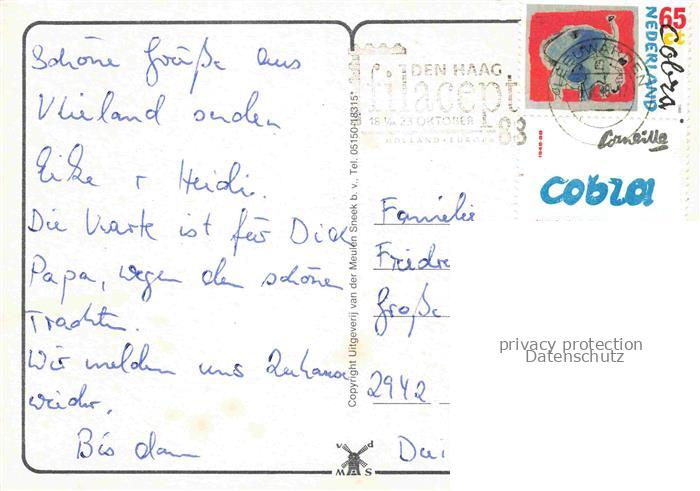 Schöne Grüße aus
Vlieland senden
Eike + Heidi.
Die Karte ist für Dich
Papa, wegen den schönen
Trachten.
Wir melden uns Zuhause
wieder.
Bis dann
Copyright Uitgeverij van der Meulen Sneek b. v., Tel. 05150-18315*
v d
M S
DEN HAAG
filacept
18 t/m 23 OKTOBER
HOLLAND-EUROPE
88
LEEUWARDEN
65
NEDERLAND
Cobra
Corneille
1948-88
cobra
Familie
Friedr
Große
2942
privacy protection
Datenschutz